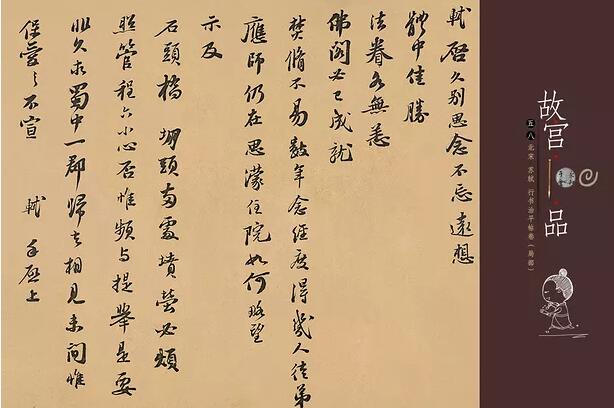 軾啓久别思念不忘遠想
體中佳勝
法眷各無恙
佛閣必已成就
焚脩不易數年念經度得幾人徒弟
應師仍在思濛住院如何略望
示及
石頭橋堋頭兩處墳塋必煩
照管程六小心否惟頻與提舉是要
非久求蜀中一郡歸去相見未間惟
保愛之不宣 軾手啓上
故宫
品
五八 北宋 苏轼 行书治平帖卷（局部）